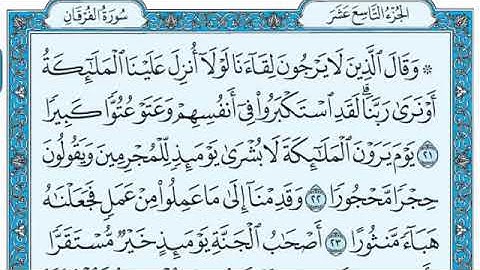 الجزء التاسع عشر
سورة الفرقان
۞ وَقَالَ الَّذِينَ لَا يَرْجُونَ لِقَاءَنَا لَوْلَا أُنزِلَ عَلَيْنَا الْمَلَائِكَةُ
أَوْ نَرَىٰ رَبَّنَا ۗ لَقَدِ اسْتَكْبَرُوا فِي أَنفُسِهِمْ وَعَتَوْ عُتُوًّا كَبِيرًا
٢١ يَوْمَ يَرَوْنَ الْمَلَائِكَةَ لَا بُشْرَىٰ يَوْمَئِذٍ لِّلْمُجْرِمِينَ وَيَقُولُونَ
حِجْرًا مَّحْجُورًا ٢٢ وَقَدِمْنَا إِلَىٰ مَا عَمِلُوا مِنْ عَمَلٍ فَجَعَلْنَاهُ
هَبَاءً مَّنثُورًا ٢٣ أَصْحَابُ الْجَنَّةِ يَوْمَئِذٍ خَيْرٌ مُّسْتَقَرًّا